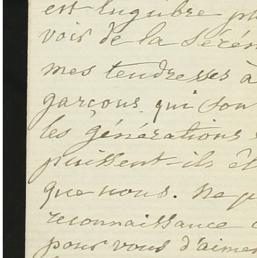 est lugubre pl
vois de la sérén
mes tendresses à
garçons qui son
les générations
puissent-ils êt
que nous. Ne p
reconnaissance
pour vous d'aime